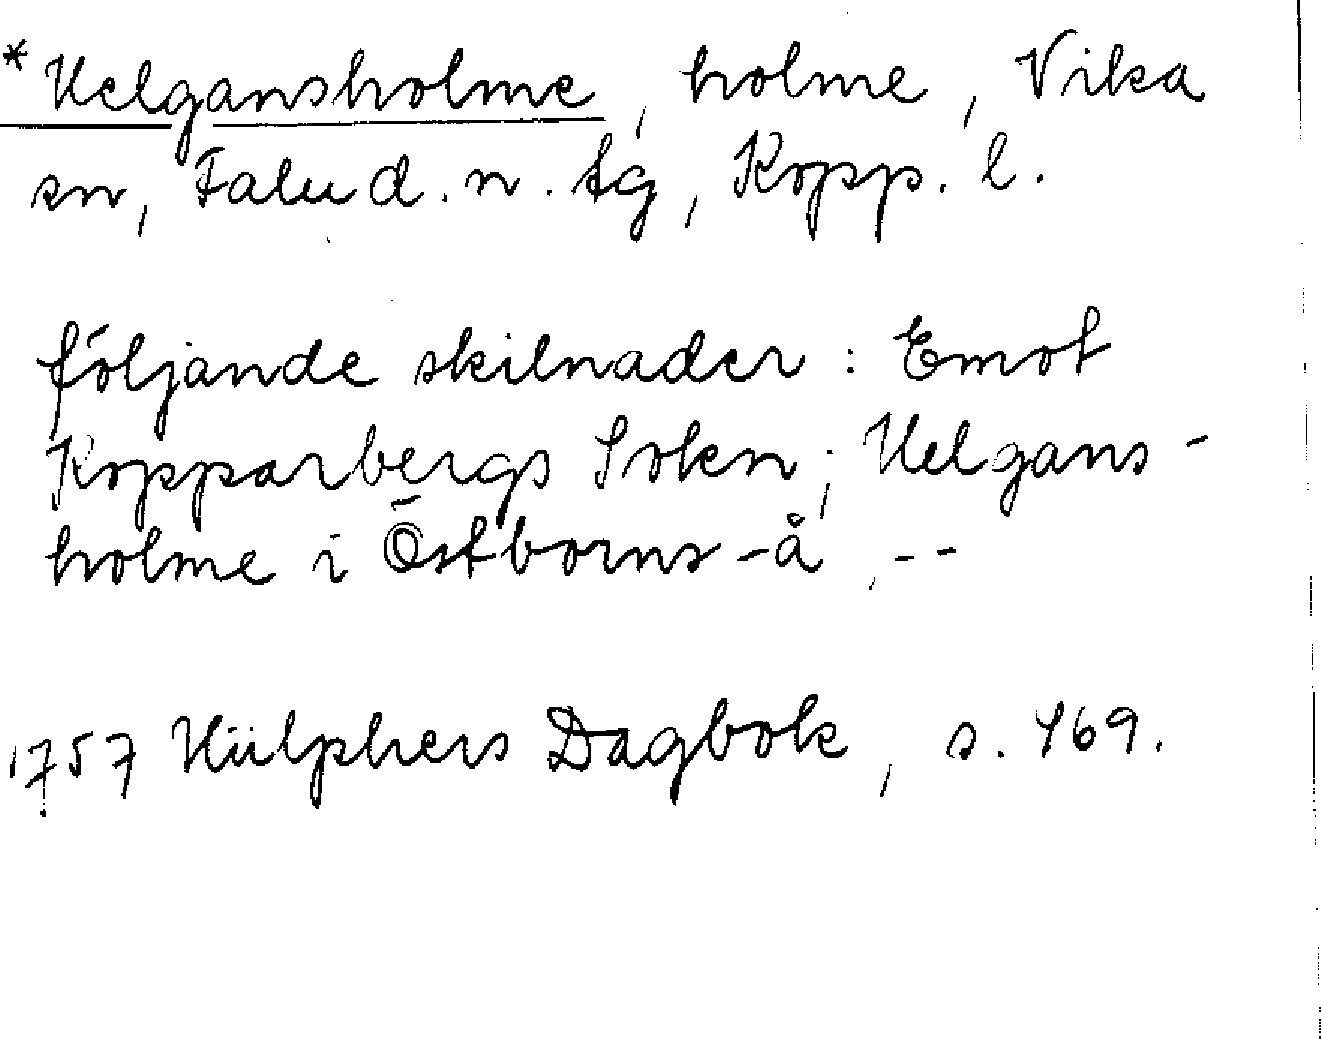 * Helgansholme, holme, Vika
sn, Falu d. n. tg, Kopp. l.
följande skilnader: Emot
Kopparbergs Soken; Helgans-
holme i Östborns-å, --
1757 Hülphers Dagbok, s. 469.